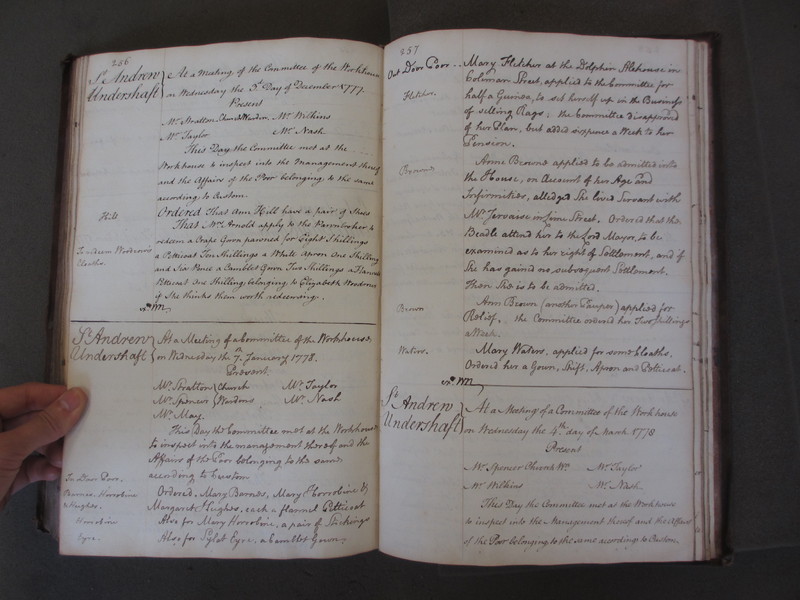 256
St Andrew Undershaft
At a Meeting of the Committee of the Workhouse
on Wednesday the 3d Day of December 1777.
Present
Mr Stratton Church Warden Mr Wilkins
Mr Taylor Mr Nash
This Day the Committee met at the
Workhouse to inspect into the Management thereof
and the Affairs of the Poor belonging to the same
according to Custom.
Hill
Ordered That Ann Hill have a pair of Shoes
That Mrs Arnold apply to the Pawnbroker to
redeem a Crape Gown pawned for Eight Shillings
To redeem Woodrow's Cloaths.
a Petticoat Ten Shillings a White Apron One Shilling
and Six Pence a Camblet Gown Two Shillings a Flannel
Petticoat One Shilling belonging to Elizabeth Woodrow
if She thinks them worth redeeming.
St Andrew Undershaft
At a Meeting of a Committee of the Workhouse,
on Wednesday the 7th January 1778.
Present.
Mr Stratton Church Mr Taylor
Mr Spencer Wardens Mr Nash
Mr May
This Day the Committee met at the Workhouse
to inspect into the management thereof and the
Affairs of the Poor belonging to the same
according to Custom
In Door Poor.
Barnes Horrobine
Ordered, Mary Barnes, Mary Horrobine &
Hughes.
Margaret Hughes, each a flannel Petticoat
Horrobine
Also for Mary Horrobine, a pair of Stockings
Eyre.
Also for Sylat Eyre, a Camblet Gown
257
Out Door Poor
Mary Fletcher at the Dolphin Alehouse in
Coleman Street, applied to the Committee for
Fletcher.
half a Guinea, to set herself up in the Business
of selling Rags; the Committee disapproved
of her Plan, but added sixpence a Week to her
Pension.
Brown
Anne Brown applied to be admitted into
the House, on Account of her Age and
Infirmities, alledged She lived Servant with
Mr Jervaise in Lime Street. Ordered that the
Beadle attend her to the Lord Mayor, to be
examined as to her right of Settlement, and if
She has gained no subsequent Settlement.
Then She is to be admitted.
Brown
Ann Brown (another Pauper) applied for
Relief. the Committee ordered her Two Shillings
a Week.
Waters.
Mary Waters, applied for some Cloaths.
Ordered her a Gown, Shift, Apron and Petticoat.
St Andrew Undershaft
At a Meeting of a Committee of the Workhouse
on Wednesday the 4th day of March 1778
Present
Mr Spencer Church Wn Mr Taylor
Mr Wilkins Mr Nash
This Day the Committee met at the Workhouse
to inspect into the Management thereof and the Affairs
of the Poor belonging to the same according to Custom.